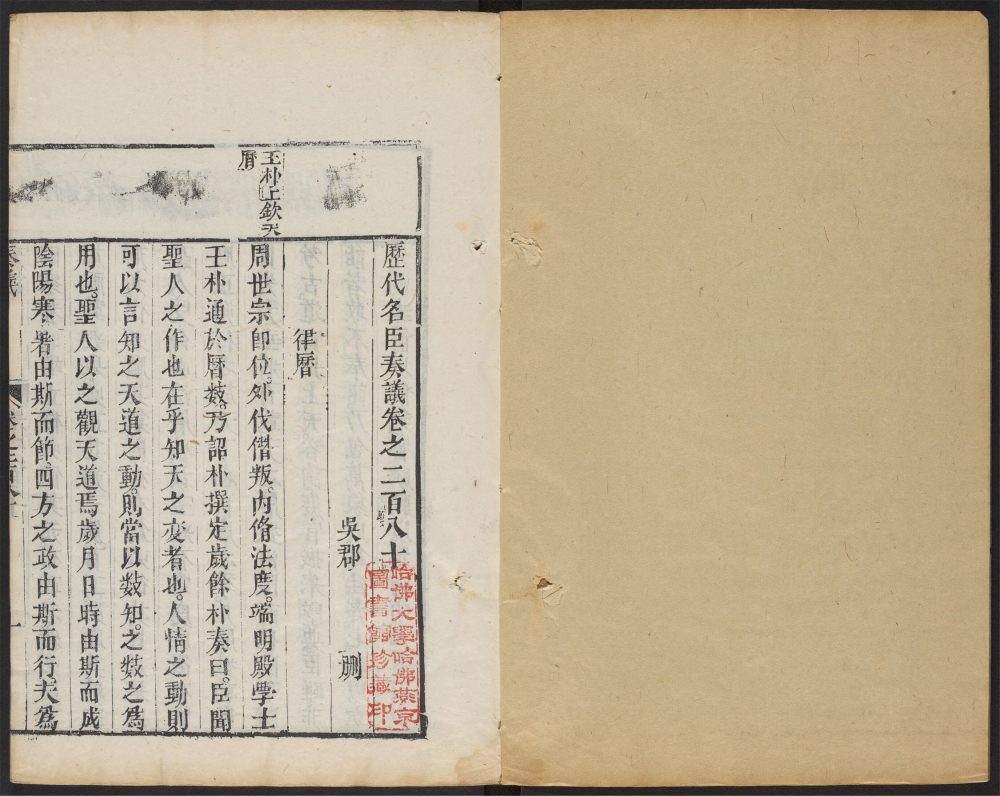 歷代名臣奏議卷之二百八十
吳郡 刪
律曆
王朴上欽天
曆
周世宗即位。外伐僭叛。內脩法度。端明殿學士
王朴通於曆数。乃詔朴撰定歲餘朴奏曰。臣聞
聖人之作也在乎知天之变者也。人情之動則
可以言知之天道之動。則當以数知。之数之為
用也。聖人以之觀天道焉歲月日時由斯而成
陰陽寒暑由斯而節。四方之政由斯而行。夫為
奏議
一
哈佛大學哈佛燕京
圖書館珍藏印